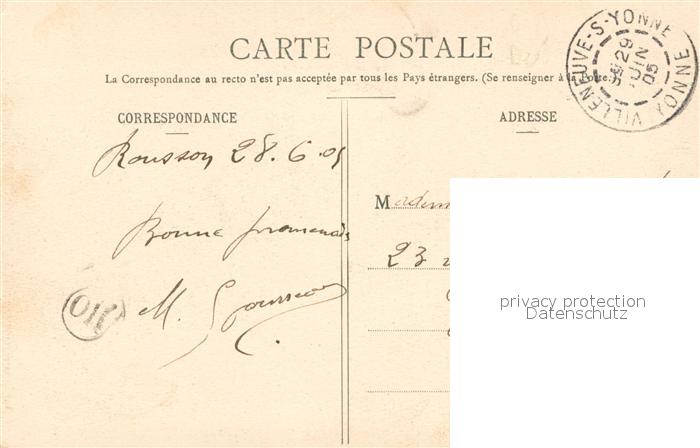 CARTE POSTALE
La Correspondance au recto n'est pas acceptée par tous les Pays étrangers. (Se renseigner à la Poste.)
VILLENEUVE-S-YONNE YONNE
29
JUIN
05
CORRESPONDANCE
ADRESSE
Rousson 28.6.05
Bonne promenade
M.
M
23
OR
privacy protection
Datenschutz